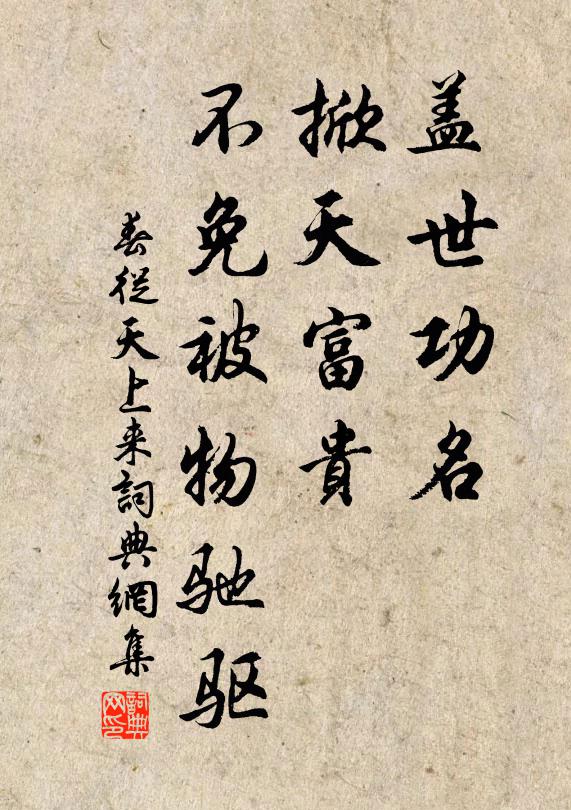 盖世功名
掀天富貴
不免被物驰驱
春從天上来詞典網集
詞典网印